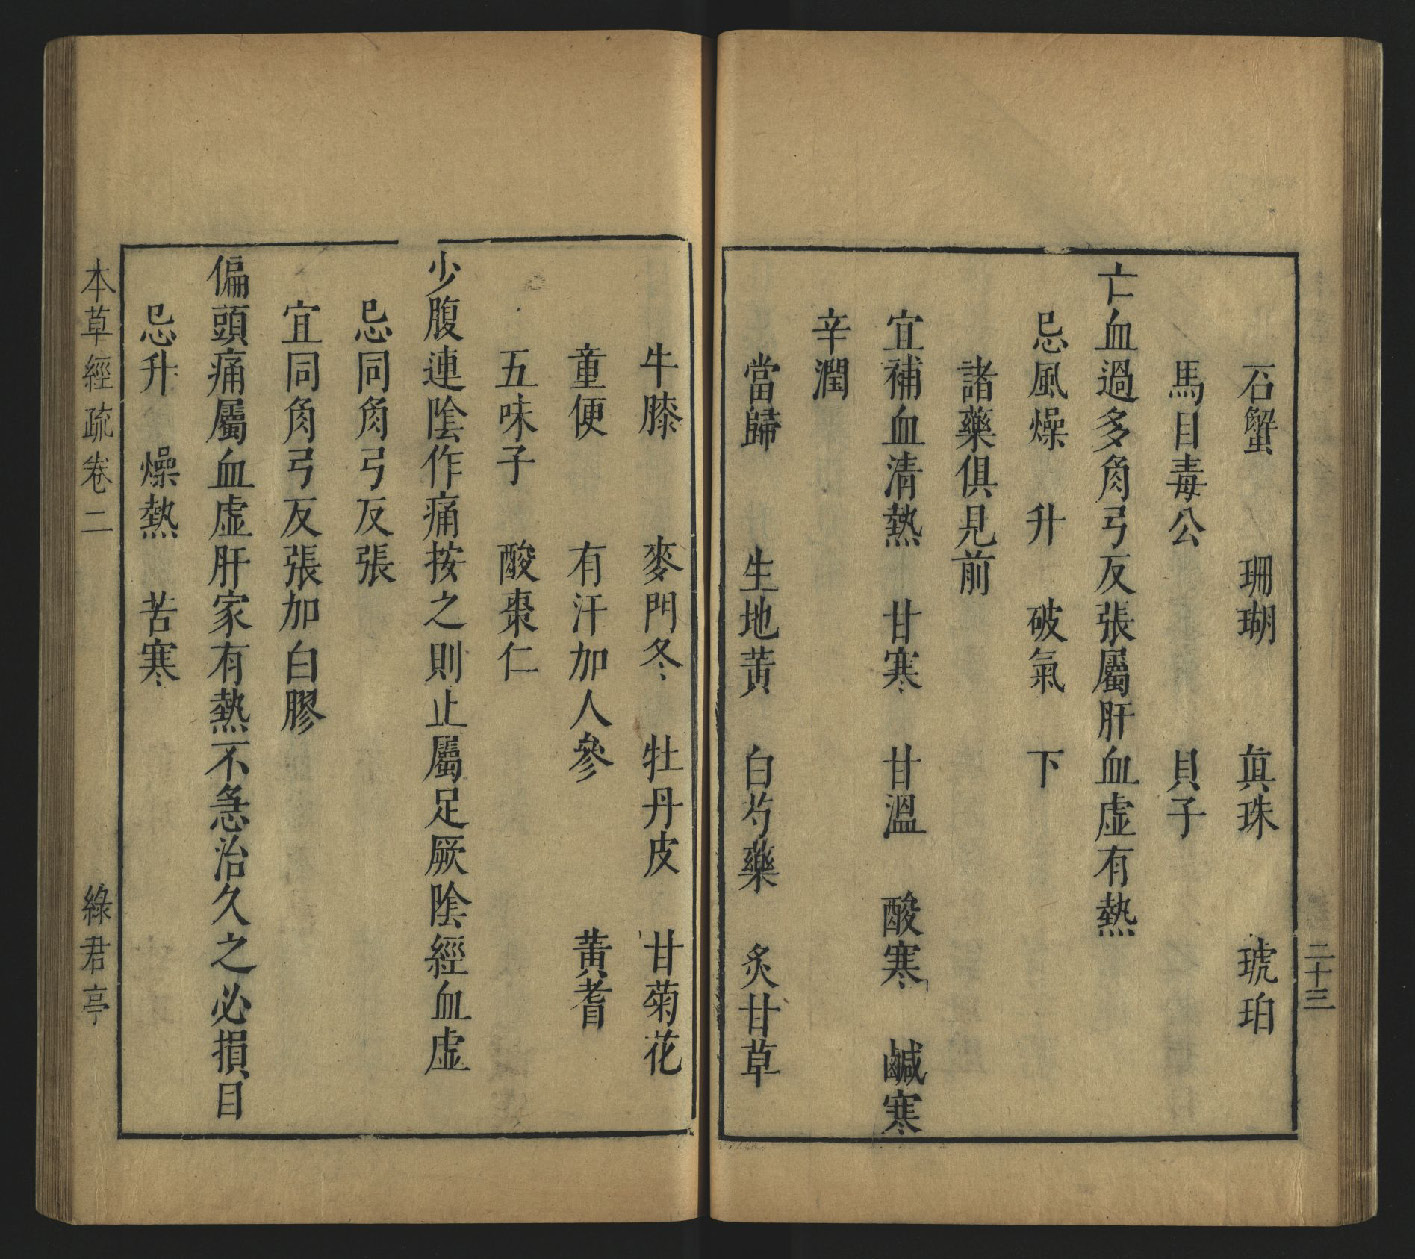 石蟹 珊瑚 真珠 琥珀
馬目毒公 貝子
亡血過多角弓反張屬肝血虛有熱
忌風燥 升 破氣 下
諸藥俱見前
宜補血清熱 甘寒 甘溫 酸寒 鹹寒
辛潤
當歸 生地黃 白芍藥 炙甘草
二十三
牛膝 麥門冬 牡丹皮 甘菊花
童便 有汗加人參 黃耆
五味子 酸棗仁
少腹連陰作痛按之則止屬足厥陰經血虛
忌同角弓反張
宜同角弓反張加白膠
偏頭痛屬血虛肝家有熱不急治久之必損目
忌升 燥熱 苦寒
本草經疏卷二 綠君亭